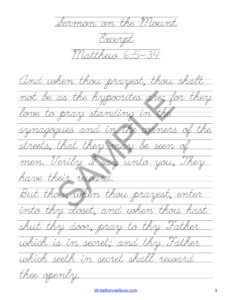 Sermon on the Mount
Excerpt
Matthew 6:5-34
And when thou prayest, thou shalt
not be as the hypocrites are: for they
love to pray standing in the
synagogues and in the corners of the
streets, that they may be seen of
men. Verily I say unto you, They
have their reward.
But thou, when thou prayest, enter
into thy closet, and when thou hast
shut thy door, pray to thy Father
which is in secret; and thy Father
which seeth in secret shall reward
thee openly.
SAMPLE
WriteBonnieRose.com